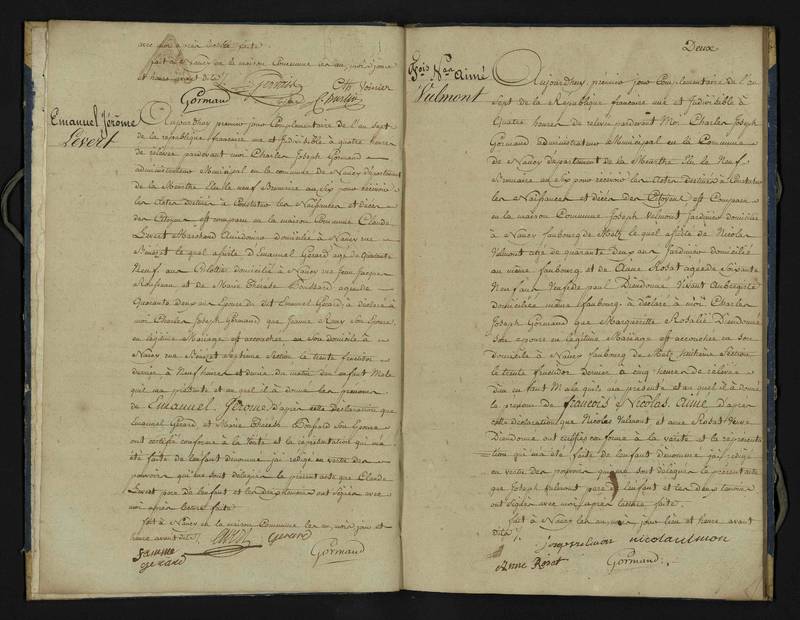 avec moi après lecture faite
fait à Nancy en la maison Commune les an, mois, jour
et heure avant dits
Gervais
Gormand
Emanuel Jérôme
Levert
Aujourdhuy premier jour Complementaire de l'an sept
de la republique francoise une et Indivisible à quatre heures
de relevée pardevant moi Charles Joseph Gormand
administrateur Municipal en la commune de Nancy département
de la Meurthe Elu le neuf Brumaire an Six pour recevoir
les Actes destinés à Constater les Naissances et décès
des Citoyens est comparu en la maison Commune Claude
Levert Marchand domicilié à Nancy rue
lequel assisté d'Emanuel Gerard agé de quarante
Neuf ans domicilié à Nancy rue Jean Jacques
Rousseau et de Marie Therese agée de
Quarante deux ans Epouse du dit Emanuel Gerard à déclaré à
moi Charles Joseph Gormand que Jeanne son Epouse
en légitime Mariage est accouchée en son domicile à
Nancy rue Septieme Section le trente fructidor
dernier à Neuf heures et demie du matin d'un Enfant Male
qu'il m'a présenté et au quel il à donné les prénoms
de Emanuel Jérome, d'après cette déclaration que
Emanuel Gerard et Marie Therese son Epouse
ont certifié conforme à la vérité et la représentation qui m'a
été faite de l'enfant dénommé j'ai rédigé en vertu des
pouvoirs qui me sont délégués le présent acte que Claude
Levert pere de l'enfant et les deux temoins ont signés avec
moi après lecture faite
fait à Nancy en la maison Commune les an, mois jour et
heure avant dits
Levert Gerard
femme
gerard
Gormand
Deux
fois Nas Aimé
Vulmont
Aujourdhuy premier jour Complementaire de l'an
sept de la République francoise une et Indivisible à
Quatre heures de relevée pardevant Moi Charles Joseph
Gormand administrateur Municipal en la Commune
de Nancy département de la Meurthe Elu le Neuf
Brumaire an Six pour recevoir les Actes destinés à Constater
les Naissances et décès des Citoyens est Comparu
en la maison Commune Joseph Vulmont Jardinier domicilié
à Nancy faubourg de Metz lequel assisté de Nicolas
Vulmont agé de quarante deux ans Jardinier domicilié
au même faubourg et de Anne Rosat agée de Soixante
Neuf ans Veuve de paul Dieudonné Vivant Aubergiste
domiciliée même faubourg à déclaré à moi Charles
Joseph Gormand que Margueritte Rosalie Dieudonné
son epouse en légitime Mariage est accouchée en son
domicile à Nancy faubourg de Metz huitieme Section
le trente fructidor Dernier à Cinq heures de relevée
d'un enfant Male qu'il m'a présenté et au quel il à donné
les prénoms de françois Nicolas Aimé d'après
cette déclaration que Nicolas Vulmont et anne Rosat Veuve
Dieudonné ont certifiés conforme à la vérité et la représenta
tion qui m'a été faite de l'enfant dénommé j'ai rédigé
en vertu des pouvoirs qui me sont délégués le présent acte
que Joseph Vulmont pere de l'enfant et les deux temoins
ont signés avec moi après lecture faite
fait à Nancy les an, mois jour lieu et heure avant
dits
nicola ulmon
Anne Rosat Gormand